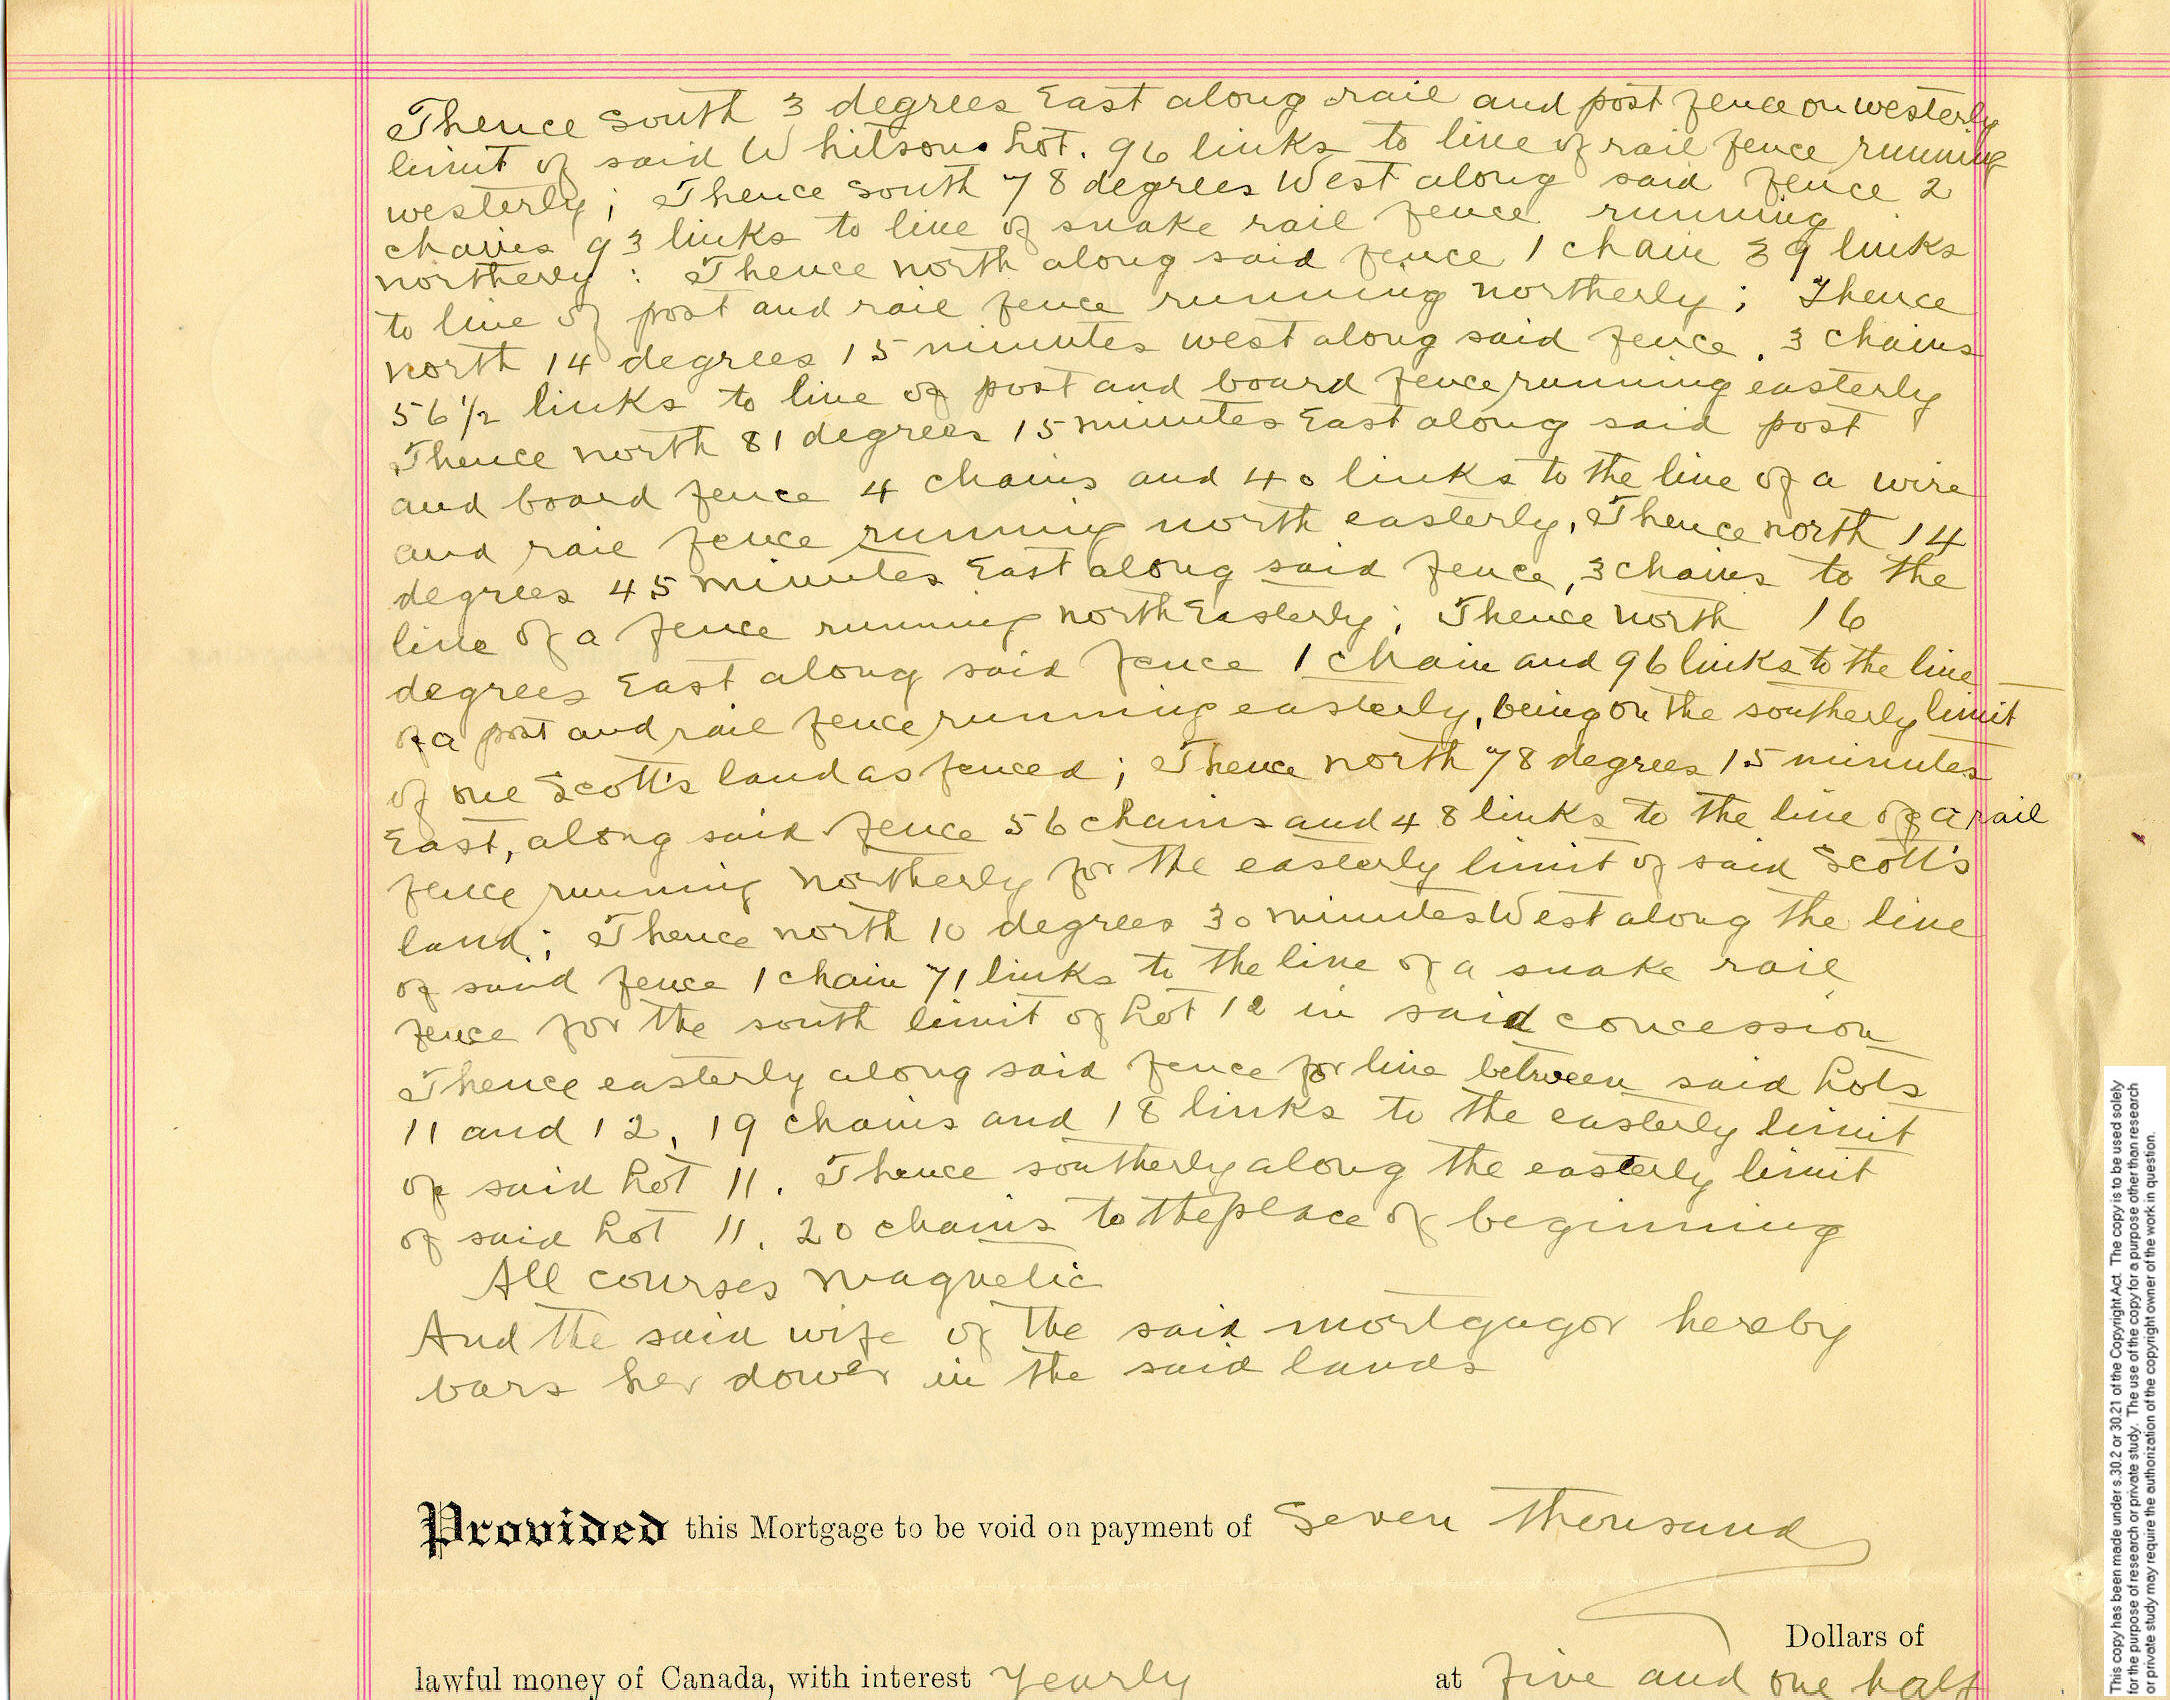 Thence South 3 degrees East along rail and post fence on westerly
limit of said Whitsons Lot. 96 links to line of rail fence running
westerly; Thence South 78 degrees West along said fence 2
chains 93 links to line of snake rail fence running
northerly: Thence north along said fence 1 chain 39 links
to line of post and rail fence running northerly; Thence
north 14 degrees 15 minutes west along said fence. 3 chains
56 1/2 links to line of post and board fence running easterly
Thence north 81 degrees 15 minutes East along said post
and board fence 4 chains and 40 links to the line of a wire
and rail fence running north easterly, Thence north 14
degrees 45 minutes East along said fence, 3 chains to the
line of a fence running north Easterly; Thence north 16
degrees East along said fence 1 chain and 96 links to the line
of a post and rail fence running easterly, being on the southerly limit
of one Scott's land as fenced; Thence north 78 degrees 15 minutes
East, along said fence 56 chains and 48 links to the line of a rail
fence running northerly for the easterly limit of said Scott's
land; Thence north 10 degrees 30 minutes West along the line
of said fence 1 chain 71 links to the line of a snake rail
fence for the south limit of Lot 12 in said concession
Thence easterly along said fence for line between said Lots
11 and 12, 19 chains and 18 links to the easterly limit
of said Lot 11. Thence southerly along the easterly limit
of said Lot 11. 20 chains to the place of beginning
All courses magnetic
And the said wife of the said mortgagor hereby
bars her dower in the said lands
Provided this Mortgage to be void on payment of Seven thousand
Dollars of
lawful money of Canada, with interest yearly at five and one half
This copy has been made under s.30.2 or 30.21 of the Copyright Act. The copy is to be used solely
for the purpose of research or private study. The use of the copy for a purpose other than research
or private study may require the authorization of the copyright owner of the work in question.